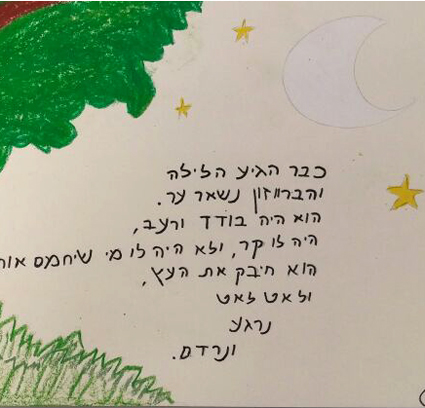 כבר הגיע הלילה
והברווזון נשאר ער.
הוא היה בודד ורעב,
היה לו קר, ולא היה לו מי שיחמם אותו
הוא חיבק את העץ,
ולאט לאט
נרגע
ונרדם.